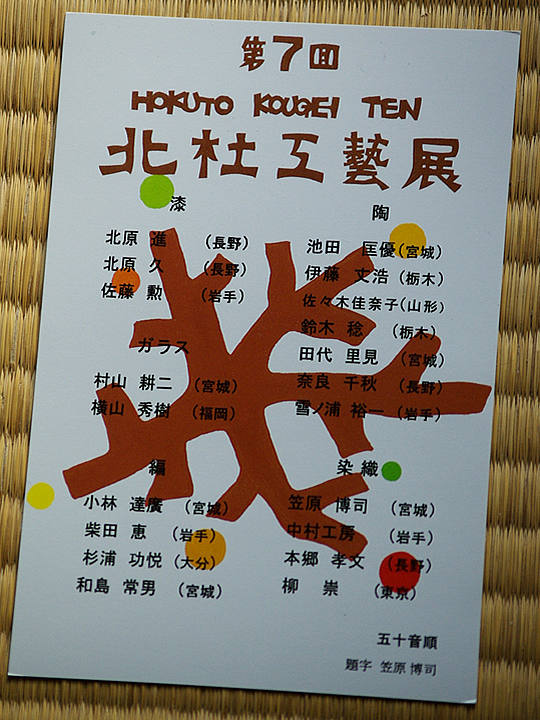 第7回
HOKUTO KOUGEI TEN
北杜工藝展
漆
北原 進 (長野)
北原 久 (長野)
佐藤 勲 (岩手)
ガラス
村山 耕二 (宮城)
横山 秀樹 (福岡)
編
小林 達廣 (宮城)
柴田 恵 (岩手)
杉浦 功悦 (大分)
和島 常男 (宮城)
陶
池田 匡優 (宮城)
伊藤 丈浩 (栃木)
佐々木佳奈子 (山形)
鈴木 稔 (栃木)
田代 里見 (宮城)
奈良 千秋 (長野)
雪ノ浦 裕一 (岩手)
染織
笠原 博司 (宮城)
中村工房 (岩手)
本郷 孝文 (長野)
柳 崇 (東京)
五十音順
題字 笠原 博司